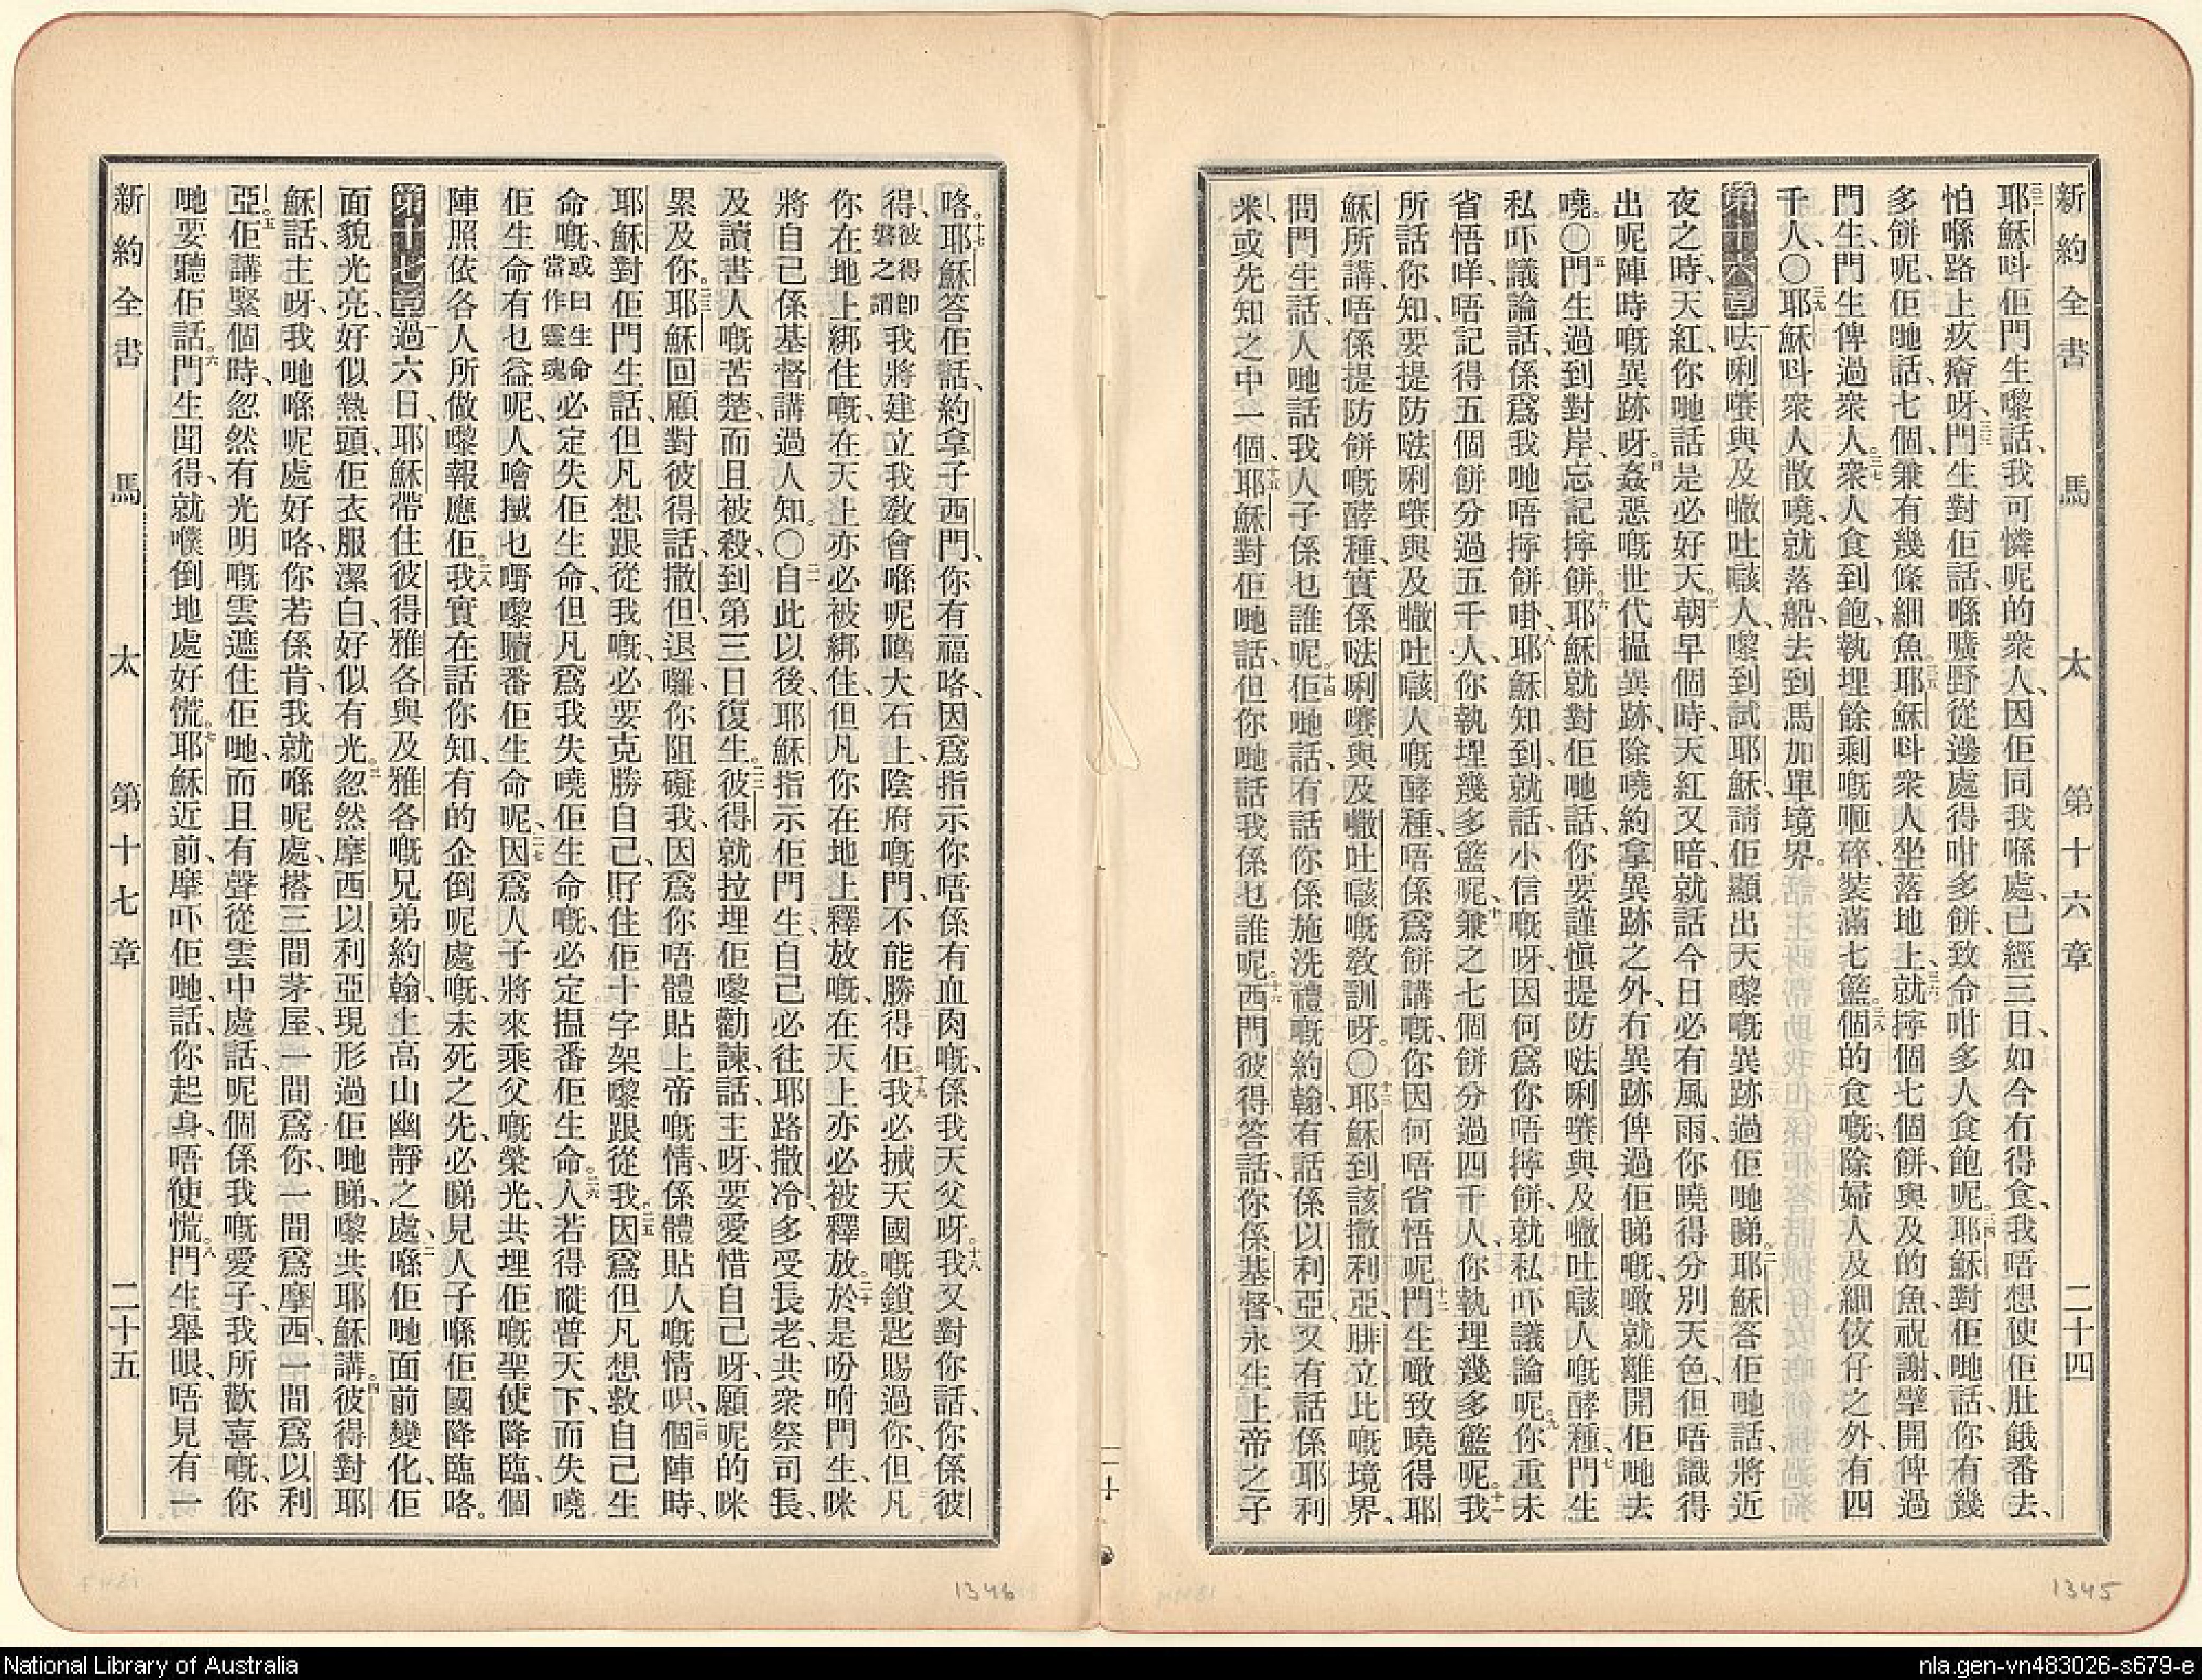 新約全書 馬 太 第十六章 二十四
耶穌呌佢門生嚟話、我可憐呢的衆人、因佢同我喺處、已經三日、如今冇得食、我唔想使佢肚餓番去、
怕喺路上疚癐呀、門生對佢話、喺曠野從邊處得咁多餅、致令咁多人食飽呢。耶穌對佢哋話、你有幾
多餅呢、佢哋話、七個、兼有幾條細魚。耶穌呌衆人坐落地上、就擰個七個餅、與及的魚、祝謝、擘開俾過
門生、門生俾過衆人。衆人食到飽、執埋餘剩嘅啞碎、裝滿七籃。個的食嘅、除婦人及細蚊仔之外、有四
千人、〇耶穌呌衆人散曉、就落船、去到馬加單境界。
第十六章 呿唎㘔與及𠿪吐㗨人、嚟到試耶穌、請佢顯出天嚟嘅異跡過佢哋睇。耶穌答佢哋話、將近
夜之時、天紅、你哋話是必好天。朝早個時、天紅又暗、就話今日必有風雨、你曉得分別天色、但唔識得
出呢陣時嘅異跡呀。姦惡嘅世代搵異跡、除曉約拿異跡之外、冇異跡俾過佢睇嘅、噉就離開佢哋去
曉。〇門生過到對岸、忘記擰餅。耶穌就對佢哋話、你要謹愼提防呿唎㘔與及𠿪吐㗨人嘅酵種。門生
私吓議論話、係爲我哋唔擰餅啩、耶穌知到、就話、小信嘅呀、因何爲你唔擰餅、就私吓議論呢。你重未
省悟咩、唔記得五個餅分過五千人、你執埋幾多籃呢、兼之七個餅分過四千人、你執埋幾多籃呢。我
所話你知、要提防呿唎㘔與及𠿪吐㗨人嘅酵種、唔係爲餅講嘅、你因何唔省悟呢。門生噉致曉得耶
穌所講、唔係提防餅嘅酵種、實係呿唎㘔與及𠿪吐㗨嘅敎訓呀。〇耶穌到該撒利亞、腓立比嘅境界、
問門生話、人哋話我人子係乜誰呢。佢哋話、有話你係施洗禮嘅約翰、有話係以利亞、又有話係耶利
米、或先知之中一個。耶穌對佢哋話、但你哋話我係乜誰呢。西門彼得答話、你係基督、永生上帝之子
咯。耶穌答佢話、約拿子西門、你有福咯、因爲指示你唔係有血肉嘅、係我天父呀。我又對你話、你係彼
得、彼得卽磐之謂我將建立我敎會喺呢嚿大石上、陰府嘅門、不能勝得佢。我必摵天國嘅鎖匙賜過你、但凡
你在地上綁住嘅、在天上亦必被綁住、但凡你在地上釋放嘅、在天上亦必被釋放。於是吩咐門生、咪
將自己係基督講過人知。〇自此以後、耶穌指示佢門生、自己必往耶路撒冷、多受長老、共衆祭司長、
及讀書人嘅苦楚、而且被殺、到第三日復生。彼得就拉埋佢嚟勸諫、話、主呀、要愛惜自己呀、願呢的咪
累及你。耶穌回顧對彼得話、撒但、退囉、你阻礙我、因爲你唔體貼上帝嘅情、係體貼人嘅情呮、個陣時、
耶穌對佢門生話、但凡想跟從我嘅、必要克勝自己、𧵳住佢十字架嚟跟從我。因爲但凡想救自己生
命嘅、或曰生命當作靈魂必定失佢生命、但凡爲我失曉佢生命嘅、必定搵番佢生命。人若得䠷普天下、而失曉
佢生命、有乜益呢、人噲摵乜嘢嚟贖番佢生命呢、因爲人子將來乘父嘅榮光、共埋佢嘅聖使降臨、個
陣照依各人所做嚟報應佢。我實在話你知、有的企倒呢處嘅、未死之先、必睇見人子喺佢國降臨咯。
第十七章 過六日、耶穌帶住彼得雅各與及雅各嘅兄弟約翰、上高山幽靜之處、喺佢哋面前變化、佢
面貌光亮、好似熱頭、佢衣服潔白、好似有光。忽然摩西以利亞現形過佢哋睇、嚟共耶穌講。彼得對耶
穌話、主呀、我哋喺呢處好咯、你若係肯、我就喺呢處、搭三間茅屋、一間爲你、一間爲摩西、一間爲以利
亞。佢講緊個時、忽然有光明嘅雲遮住佢哋、而且有聲從雲中處話、呢個係我嘅愛子、我所歡喜嘅、你
哋要聽佢話。門生聞得、就嘆倒地處好慌。耶穌近前、摩吓佢哋、話、你起身、唔使慌。門生舉眼、唔見有一
新約全書 馬 太 第十七章 二十五
1346
1345
National Library of Australia
nla.gen-vn483026-s679-e